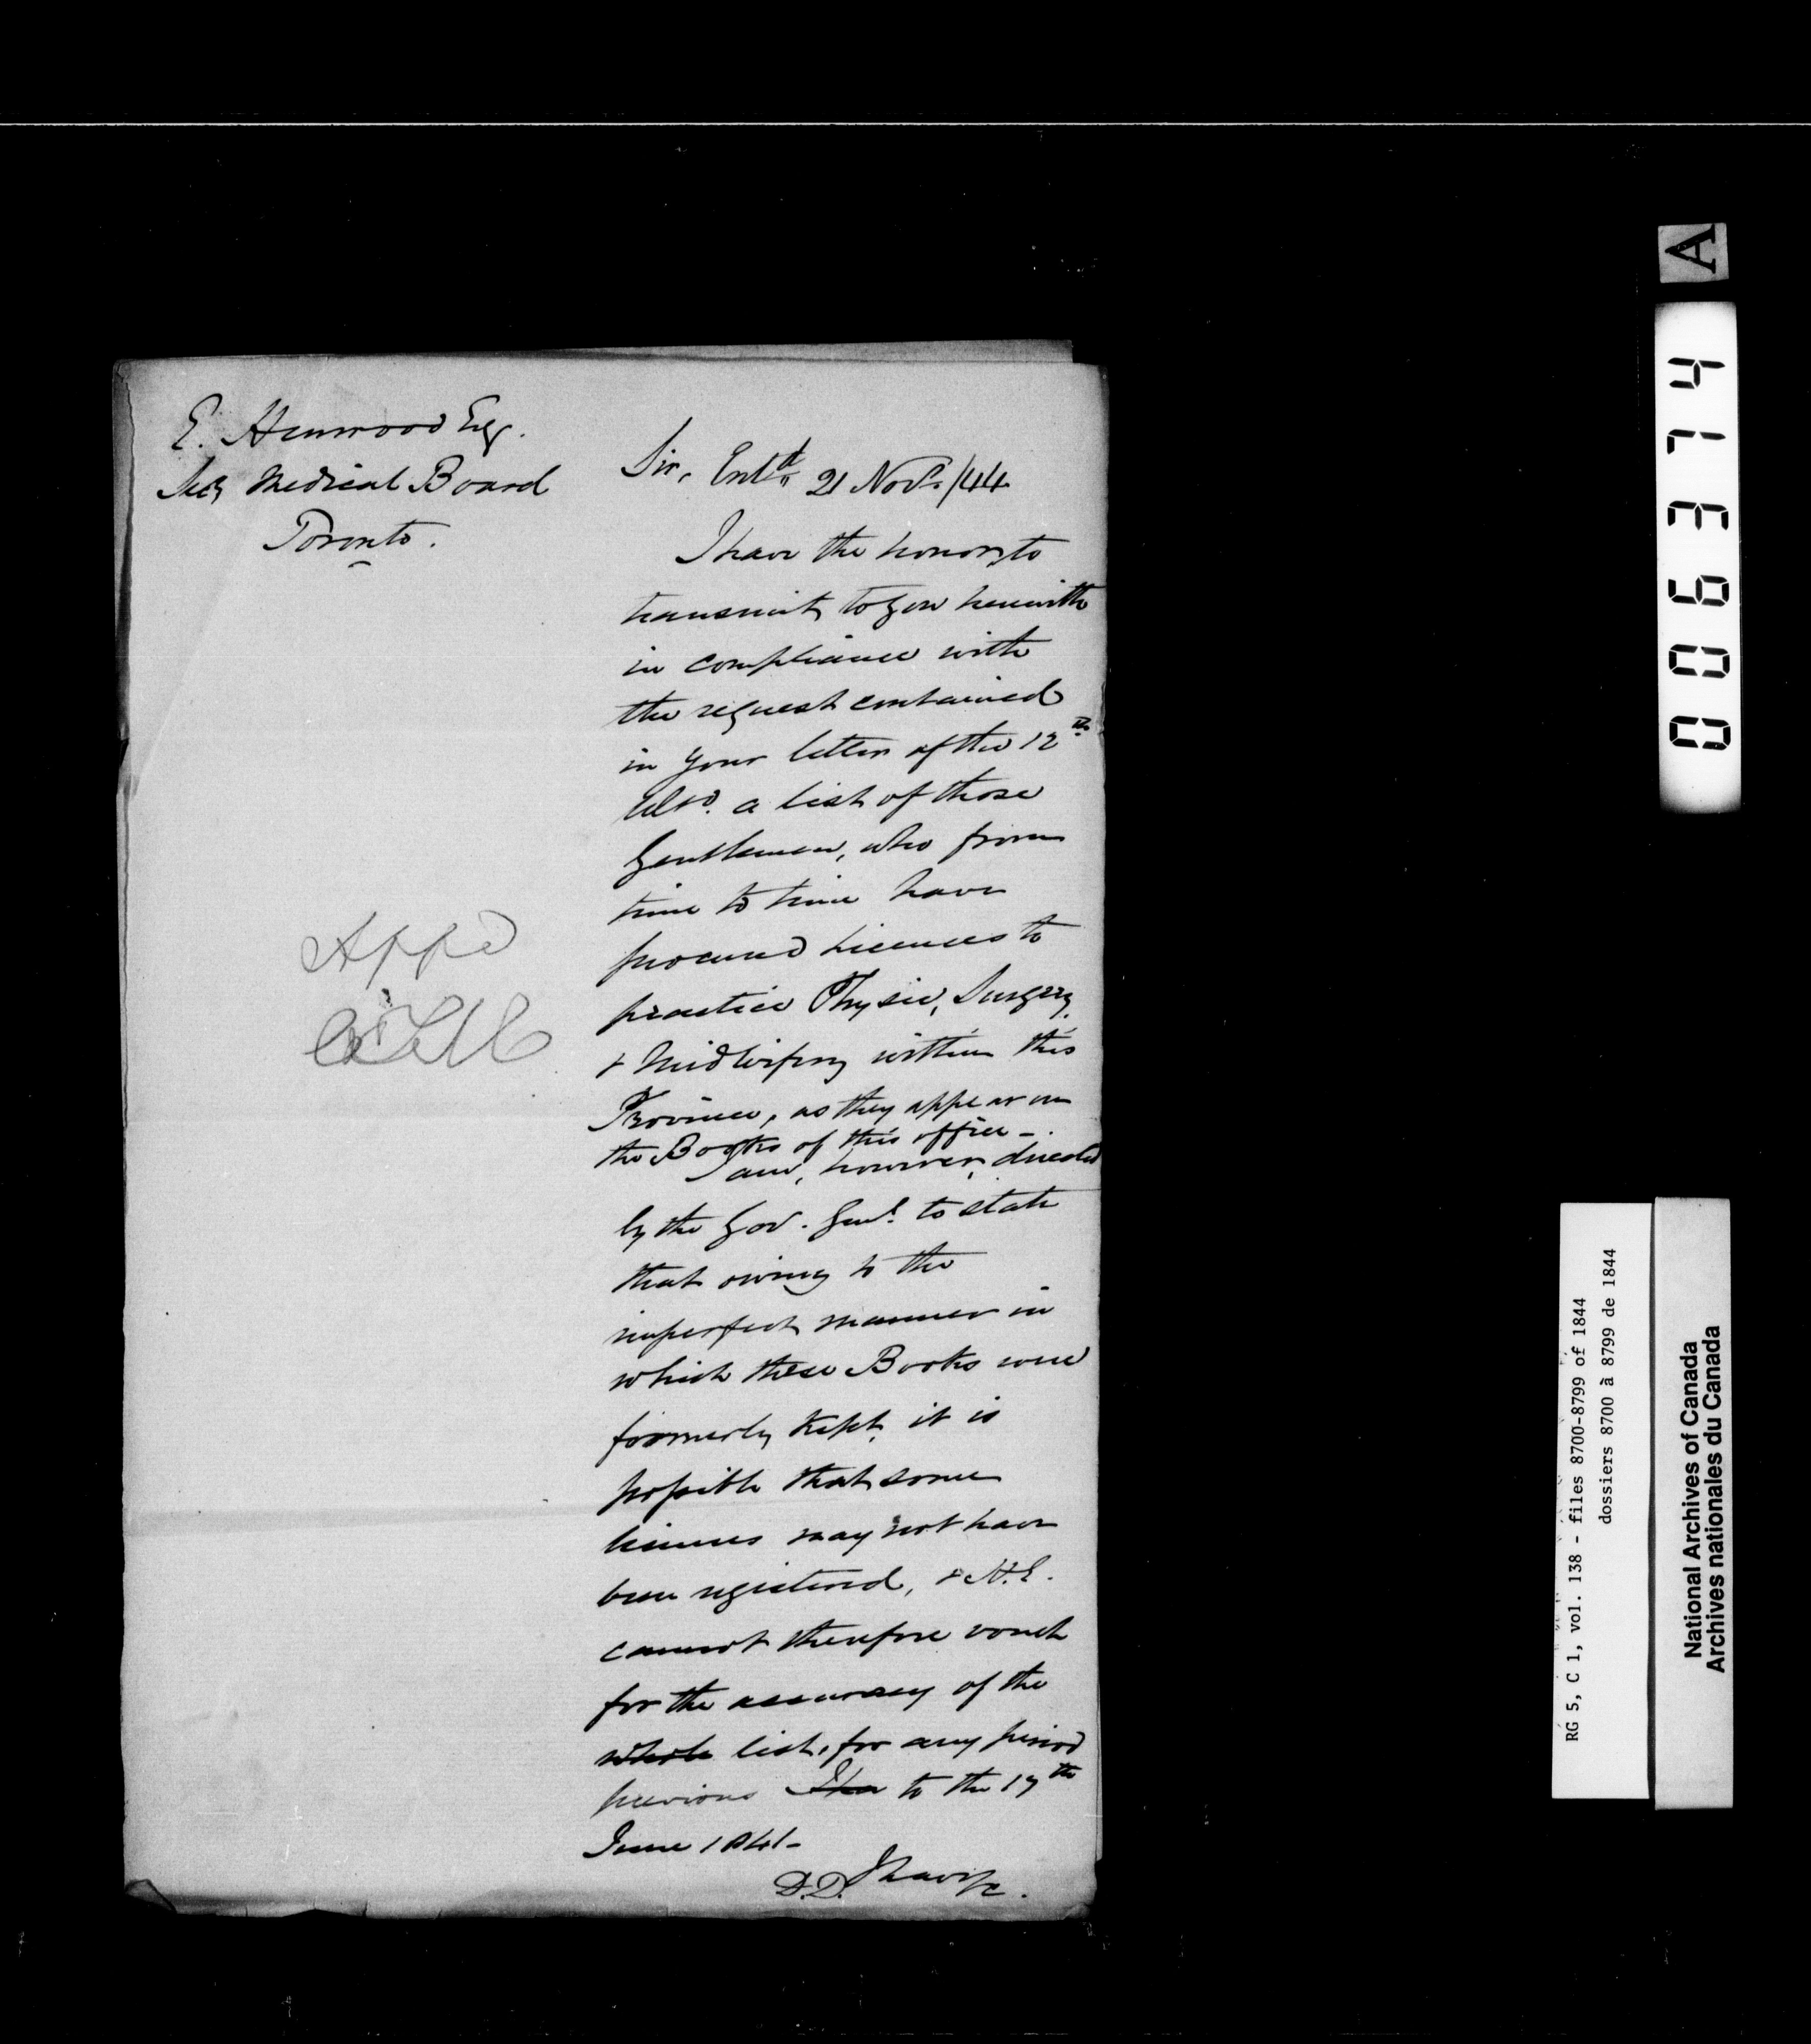 E. Henwood Esq.
Secy Medical Board
Toronto.
Sir, Entd 21 Nov. /44
I have the honor to
transmit to you herewith
in compliance with
the request contained
in your letter of the 12th
Ulto. a list of those
Gentlemen, who from
time to time have
procured Licenses to
practice Physic, Surgery,
& Midwifery within this
Province, as they appear on
the Books of this office -.
I am, however, directed
by the Gov. Genl. to state
that owing to the
imperfect manner in
which these Books were
formerly kept, it is
possible that some
licenses may not have
been registered, & H.E.
cannot therefore vouch
for the accuracy of the
whole list, for any period
previous to the 17th
June 1841-
D.D. I have &c.
Appd
A
006374
RG 5, C 1, vol. 138 - files 8700-8799 of 1844
dossiers 8700 à 8799 de 1844
National Archives of Canada
Archives nationales du Canada